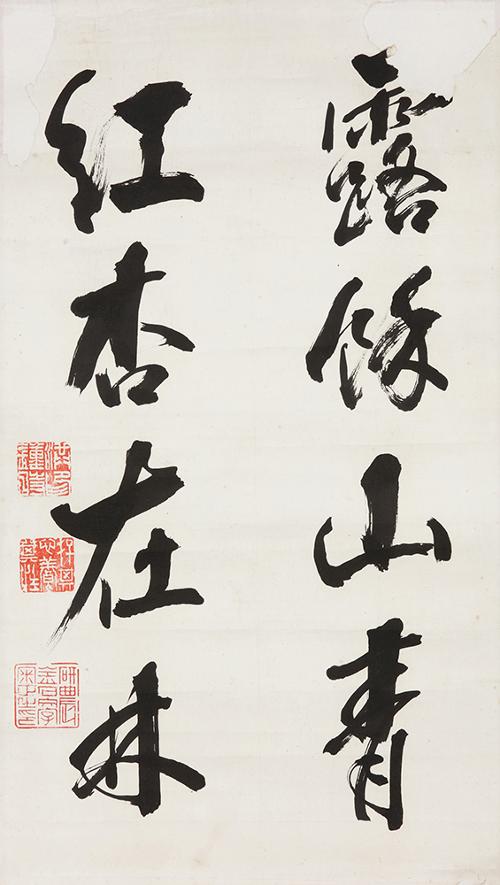 露餘山青
紅杏在林